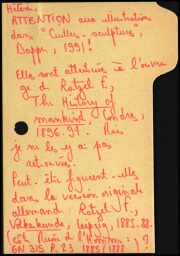 Hélène,
ATTENTION aux illustrations
dans "Cuillers - sculptures",
Dapper, 1991!
Elle sont attribuées à l'ouvra
ge d Ratzel F.,
The History of
mankind, Londres,
1896-97. Rien
je ni les y a pas
retrouvées.
Peut-être figurent-elles
dans la version originale
allemande: Ratzel F.,
Völkerkunde, Leipzig, 1885-88.
(côte Musée de l'Homme: ) ?
GN 315 R 23 1885/1888